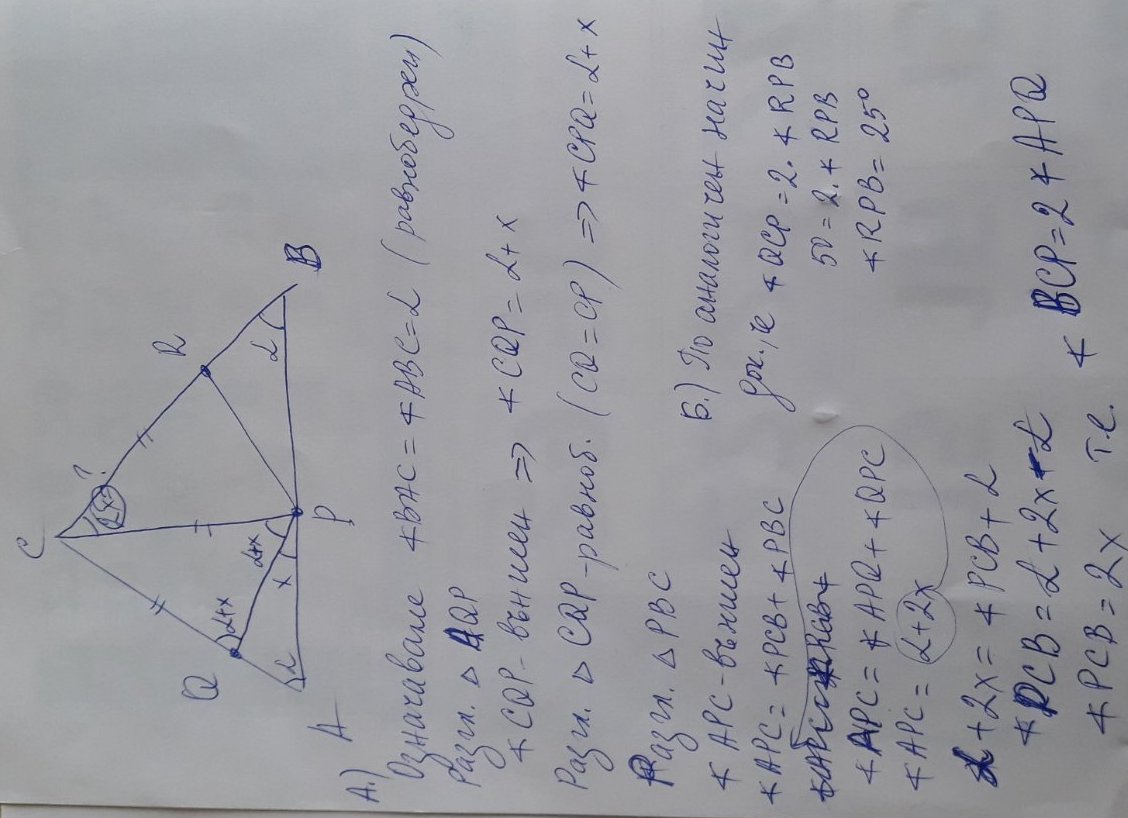 C
R
2x?
Q
α+x
α+x
x
α
α
A
P
B
А.)
Означаваме ∢BAC = ∢ABC = α (равнобедрен)
Разгл. △ AQP
∢CQP - външен ⇒ ∢CQP = α + x
Разгл. △ CQP - равноб. (CQ = CP) ⇒ ∢CPQ = α + x
Разгл. △ PBC
∢ APC - външен
∢APC = ∢PCB + ∢PBC
∢APC = ∢APQ + ∢QPC
∢APC = α + 2x
α + 2x = ∢PCB + α
∢PCB = α + 2x - α
∢PCB = 2x т.е. ∢ BCP = 2 ∢APQ
Б.) По аналогичен начин
док., че ∢QCP = 2. ∢RPB
50 = 2. ∢RPB
∢RPB = 25°